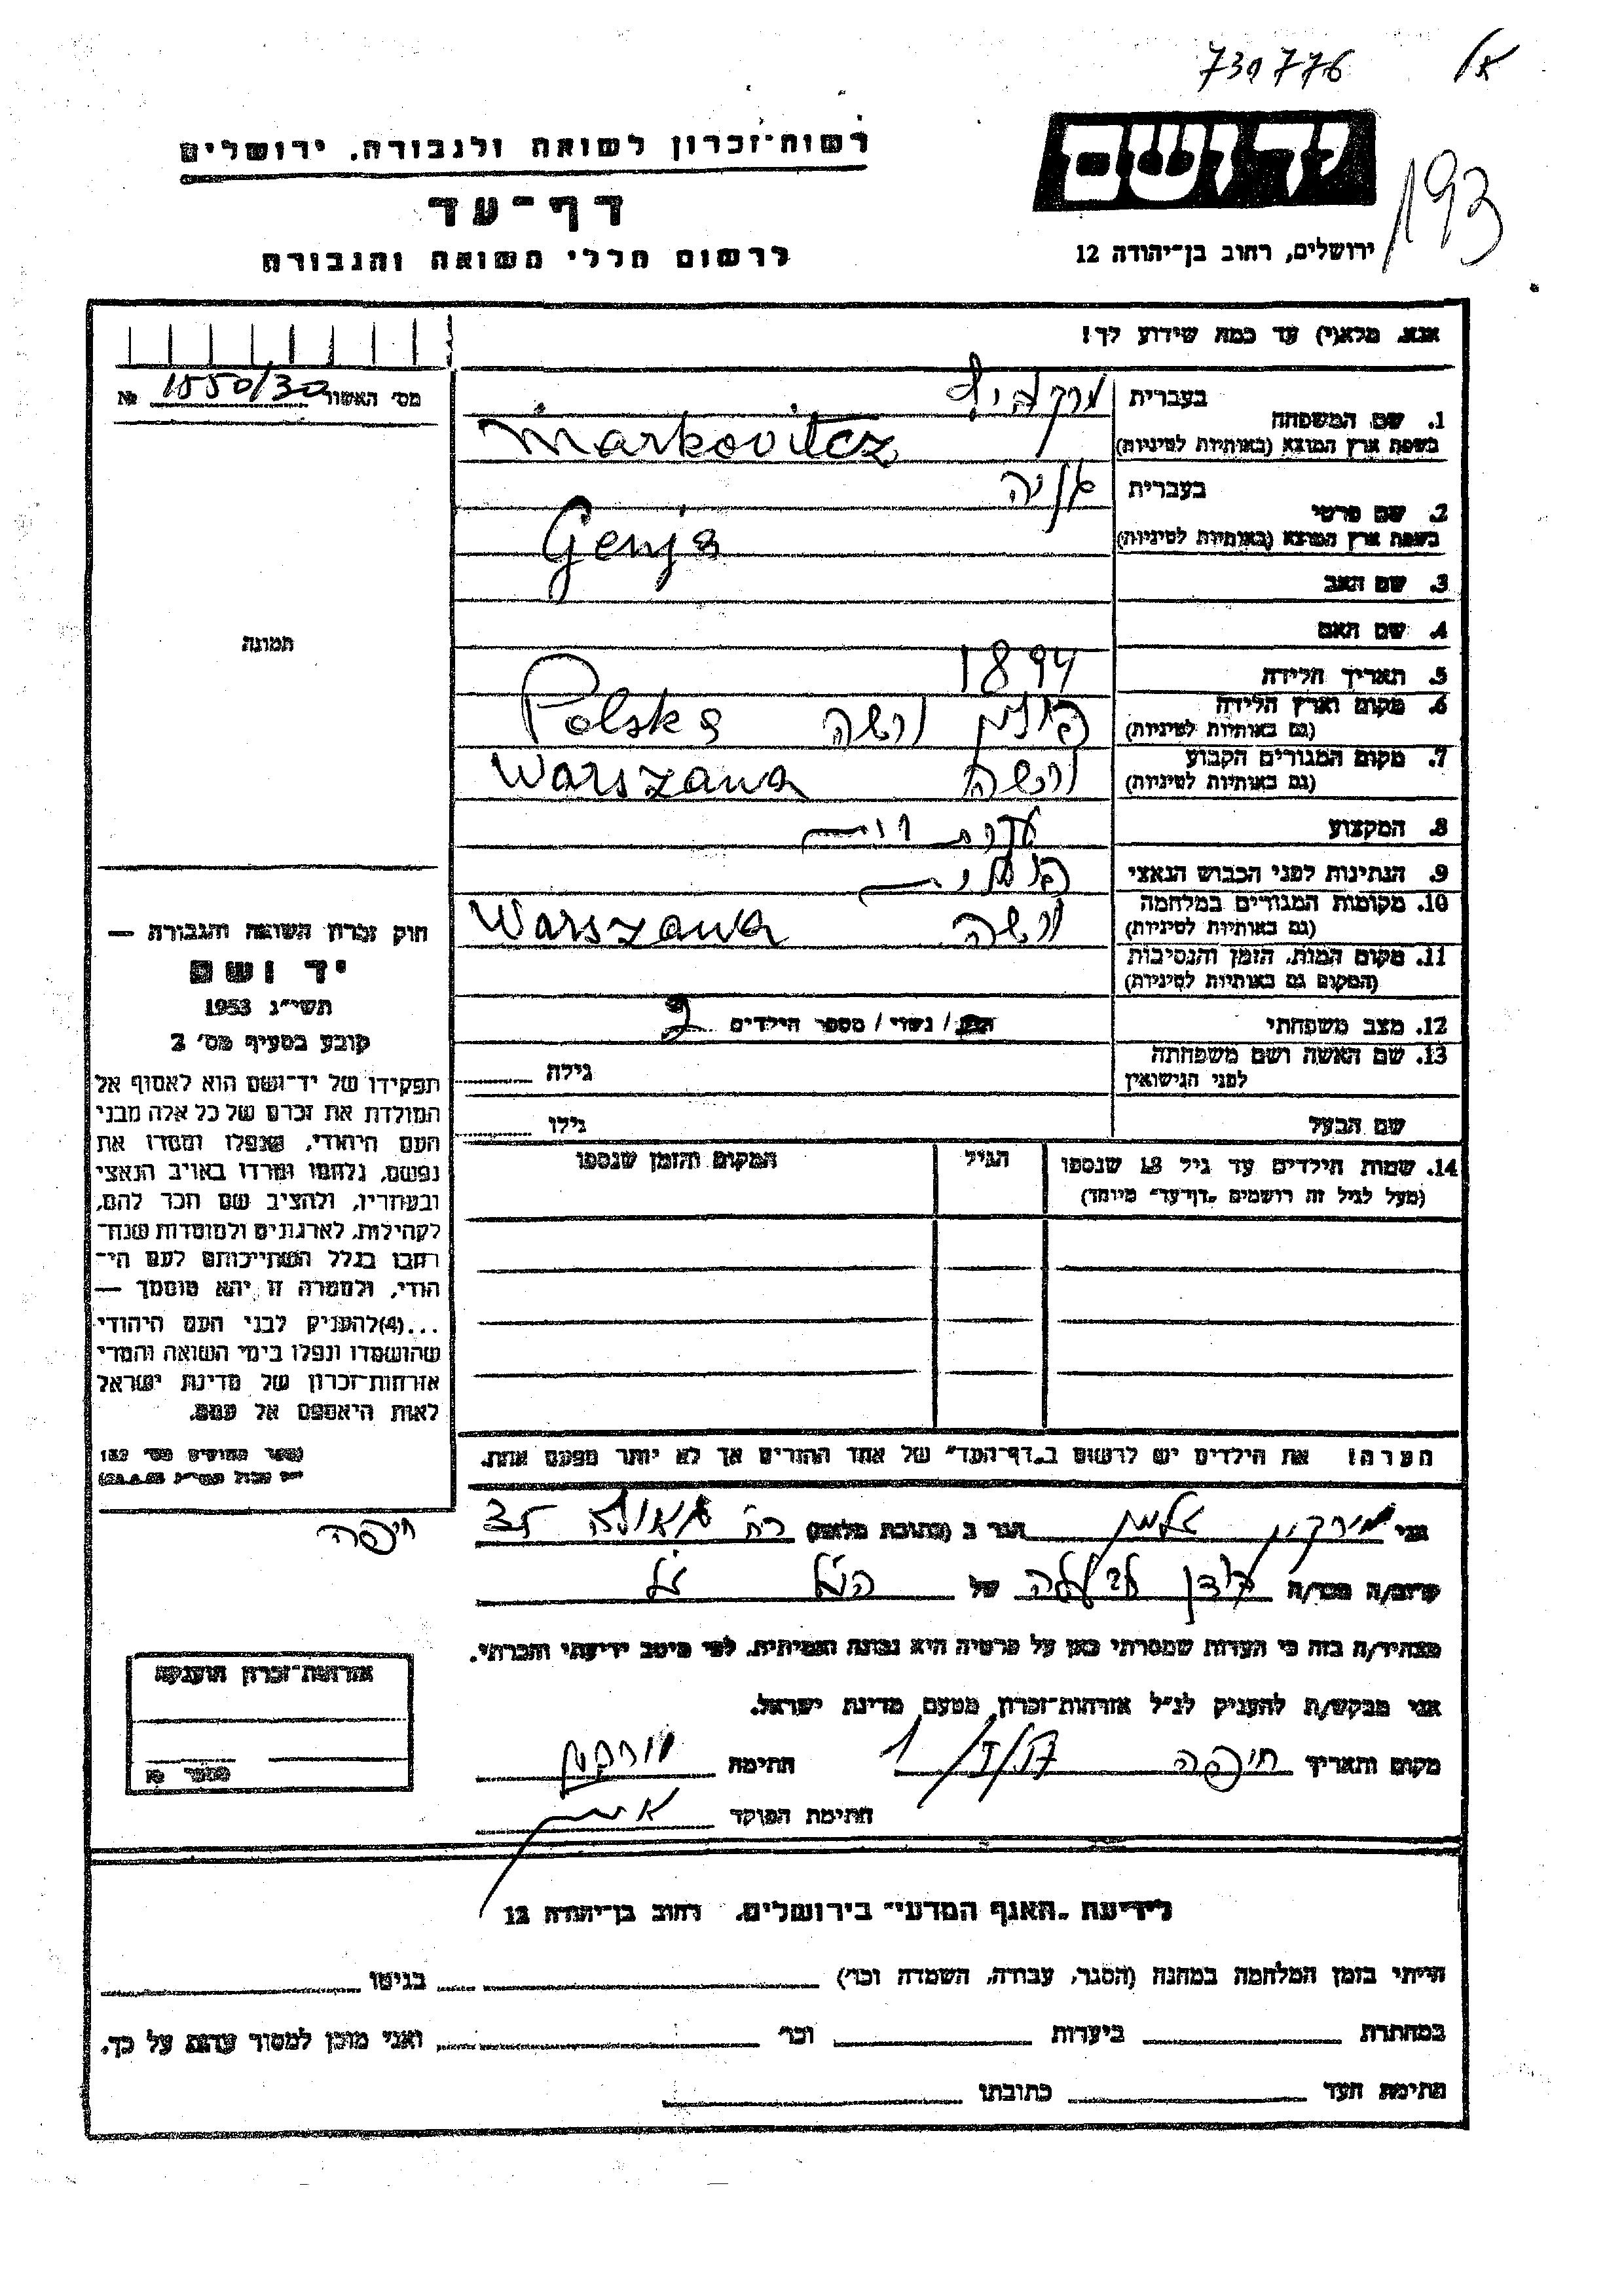 739776
יד ושם
193
ירושלים, רחוב בן־יהודה 12
רשות־זכרון לשואה ולגבורה, ירושלים
דף־עד
לרישום חללי השואה והגבורה
אנא, מלא(י) עד כמה שידוע לך!
מס׳ האשור 1550/30 №
תמונה
1. שם המשפחה בעברית
בשפת ארץ המוצא (באותיות לטיניות) Markovitcz
2. שם פרטי בעברית גניה
בשפת ארץ המוצא (באותיות לטיניות) Genja
3. שם האב
4. שם האם
5. תאריך הלידה 1894
6. מקום וארץ הלידה פולין ורשה Polska
(גם באותיות לטיניות)
7. מקום המגורים הקבוע ורשה Warszawa
(גם באותיות לטיניות)
8. המקצוע
9. הנתינות לפני הכבוש הנאצי
10. מקומות המגורים במלחמה ורשה Warszawa
(גם באותיות לטיניות)
11. מקום המות, הזמן והנסיבות
(המקום גם באותיות לטיניות)
12. מצב משפחתי / נשוי / מספר הילדים 2
13. שם האשה ושם משפחתה גילה
לפני הנישואין
שם הבעל גילו
14. שמות הילדים עד גיל 18 שנספו הגיל המקום והזמן שנספו
(מעל לגיל זה רושמים „דף־עד״ מיוחד)
הערה! את הילדים יש לרשום ב„דף־העד״ של אחד ההורים אך לא יותר מפעם אחת.
חוק זכרון השואה והגבורה —
יד ושם
תשי״ג 1953
קובע בסעיף מס׳ 2
תפקידו של יד־ושם הוא לאסוף אל
המולדת את זכרם של כל אלה מבני
העם היהודי, שנפלו ומסרו את
נפשם, נלחמו ומרדו באויב הנאצי
ובעוזריו, ולהציב שם וזכר להם,
לקהילות, לארגונים ולמוסדות שנח־
רבו בגלל השתייכותם לעם הי־
הודי, ולמטרה זו יהא מוסמך —
...(4)להעניק לבני העם היהודי
שהושמדו ונפלו בימי השואה והמרי
אזרחות־זכרון של מדינת ישראל
לאות היאספם אל עמם.
ספר החוקים מס׳ 132
אני הגר ב (כתובת מלאה) רח׳ גאולה 35
חיפה
קרוב/ה מכר/ה של הנ״ל
מצהיר/ה בזה כי העדות שמסרתי כאן על פרטיה היא נכונה ואמיתית, לפי מיטב ידיעתי והכרתי.
אני מבקש/ת להעניק לנ״ל אזרחות־זכרון מטעם מדינת ישראל.
מקום ותאריך חיפה חתימה
חתימת הפוקד
אזרחות־זכרון הוענקה
מספר №
לידיעת „האגף המדעי״ בירושלים, רחוב בן־יהודה 12
הייתי בזמן המלחמה במחנה (הסגר, עבודה, השמדה וכו׳) בגיטו
במחתרת ביערות וכו׳ ואני מוכן למסור עדות על כך.
חתימת העד כתובתו